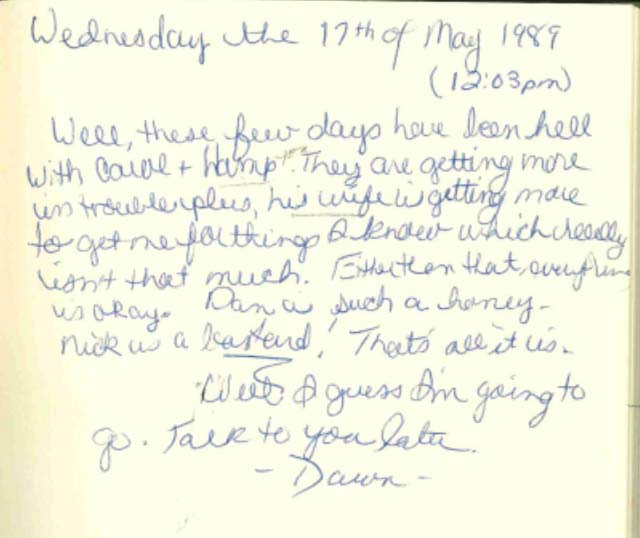 Wednesday the 17th of May 1989
(12:03pm)
Well, these few days have been hell
with Carol + hump. They are getting more
in trouble plus, his wife is getting more
to get me for things I know which really
isn't that much. that, everything
is okay. Dan is such a honey.
Nick is a bastard! That's all it is.
Well I guess I'm going to
go. Talk to you later.
- Dawn -